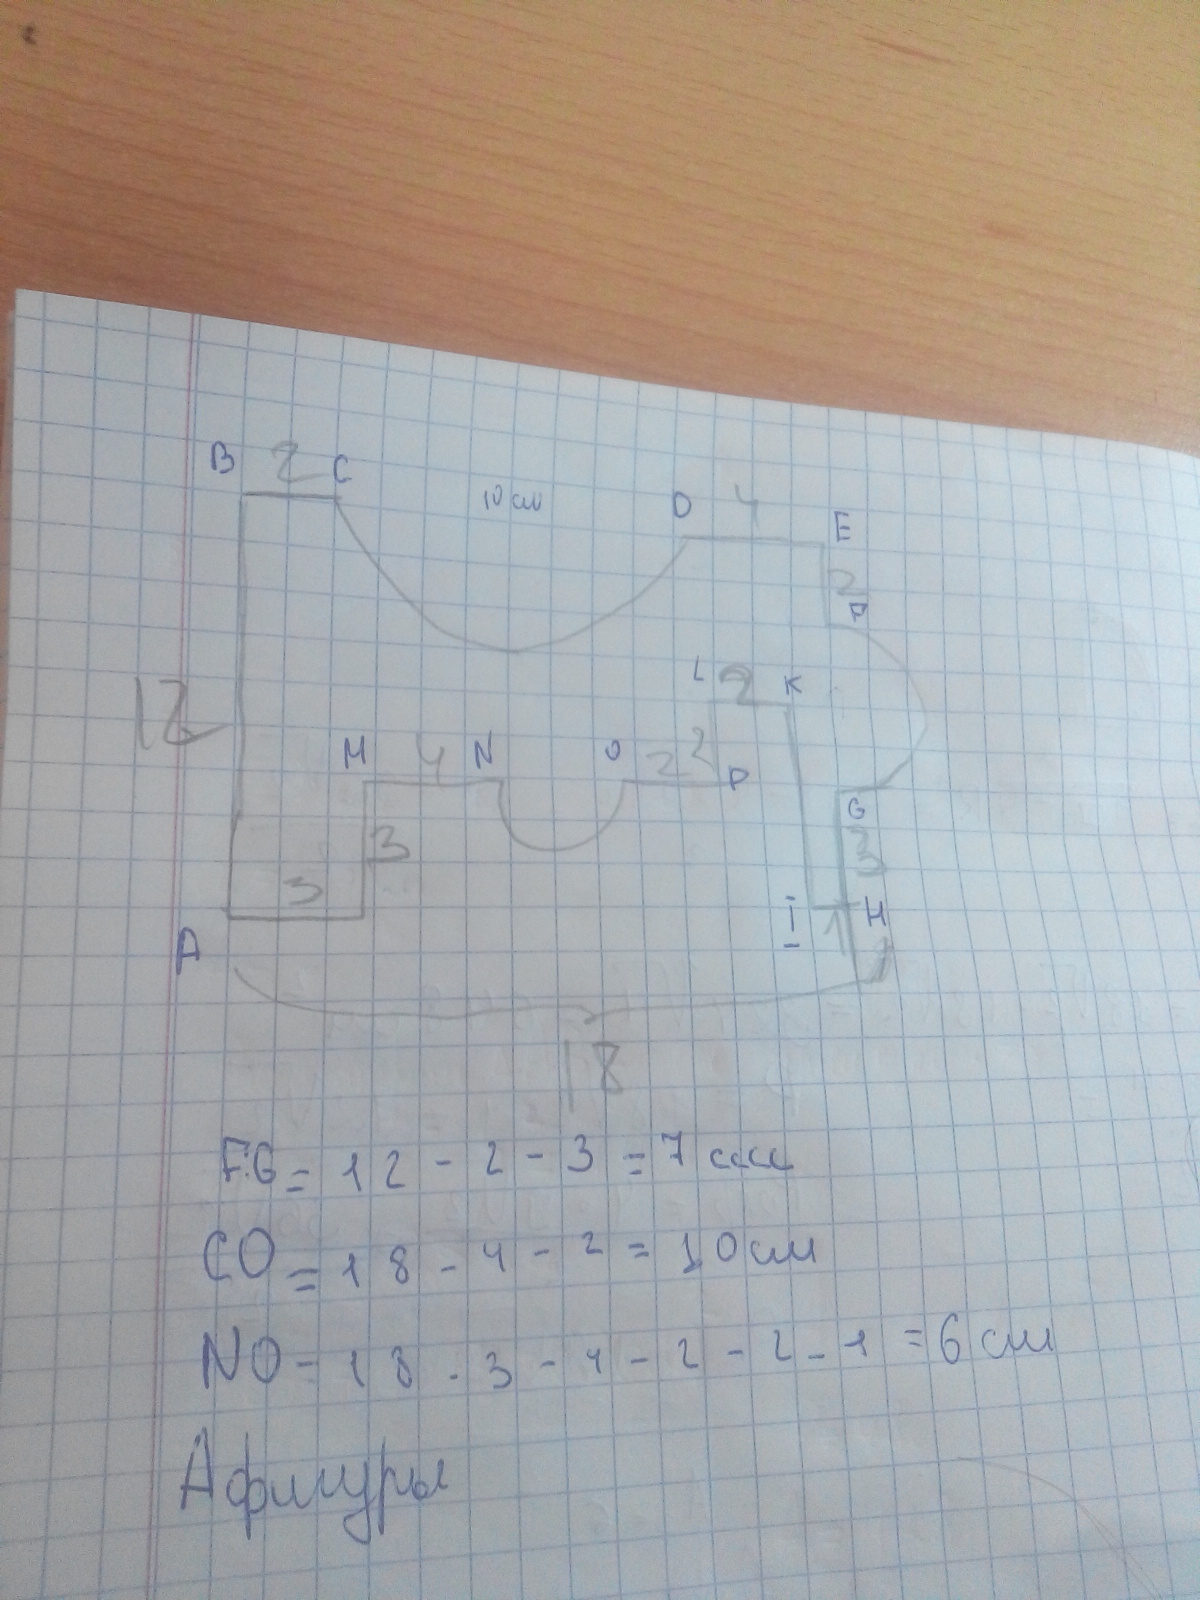 B 2 C
10 см
D 4 E
2
F
L 2 K
12
M 4 N
O 2 2 P
G
3
3
3
A
I 1 H
18
FG = 12 - 2 - 3 = 7 см
CD = 18 - 4 - 2 = 10 см
NO - 18 - 3 - 4 - 2 - 2 - 1 = 6 см
А фигуры